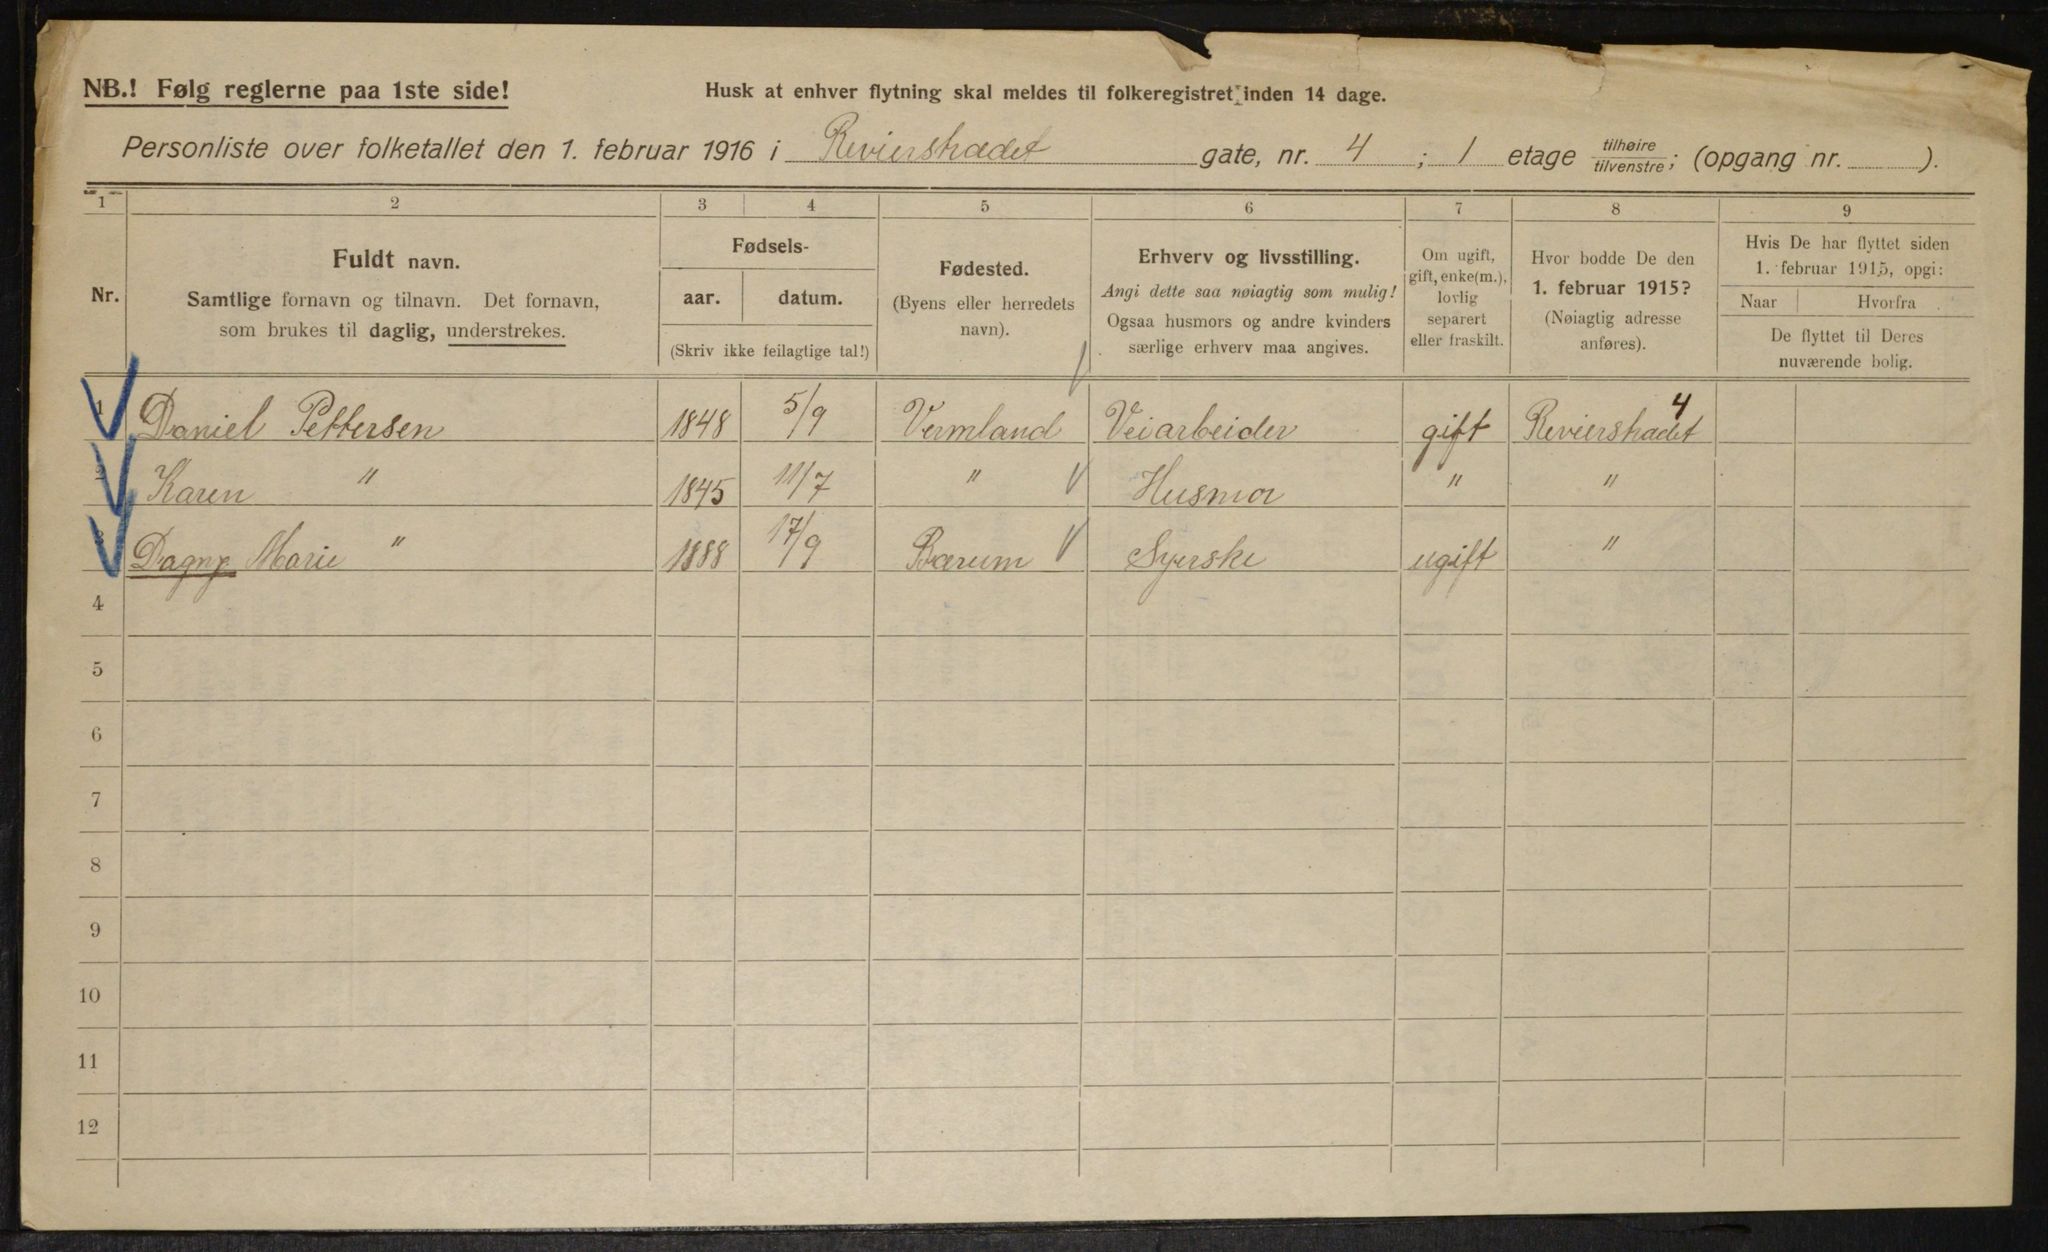 NB.! Følg reglerne paa 1ste side!
Husk at enhver flytning skal meldes til folkeregistret inden 14 dage.
Personliste over folketallet den 1. februar 1916 i Revierstrædet gate, nr. 4 ; 1 etage tilhøire/tilvenstre; (opgang nr. ).
1 2 3 4 5 6 7 8 9
Nr.
Fuldt navn.
Samtlige fornavn og tilnavn. Det fornavn,
som brukes til daglig, understrekes.
Fødsels-
aar. datum.
(Skriv ikke feilagtige tal!)
Fødested.
(Byens eller herredets
navn).
Erhverv og livsstilling.
Angi dette saa nøiagtig som mulig!
Ogsaa husmors og andre kvinders
særlige erhverv maa angives.
Om ugift,
gift, enke(m.),
lovlig
separert
eller fraskilt.
Hvor bodde De den
1. februar 1915?
(Nøiagtig adresse
anføres).
Hvis De har flyttet siden
1. februar 1915, opgi:
Naar Hvorfra
De flyttet til Deres
nuværende bolig.
1 Daniel Pettersen 1848 5/9 Vermland Veiarbeider gift Revierstrædet 4
2 Karen " 1845 11/7 " Husmor " "
3 Dagny Marie " 1888 17/9 Bærum Syerske ugift "
4
5
6
7
8
9
10
11
12